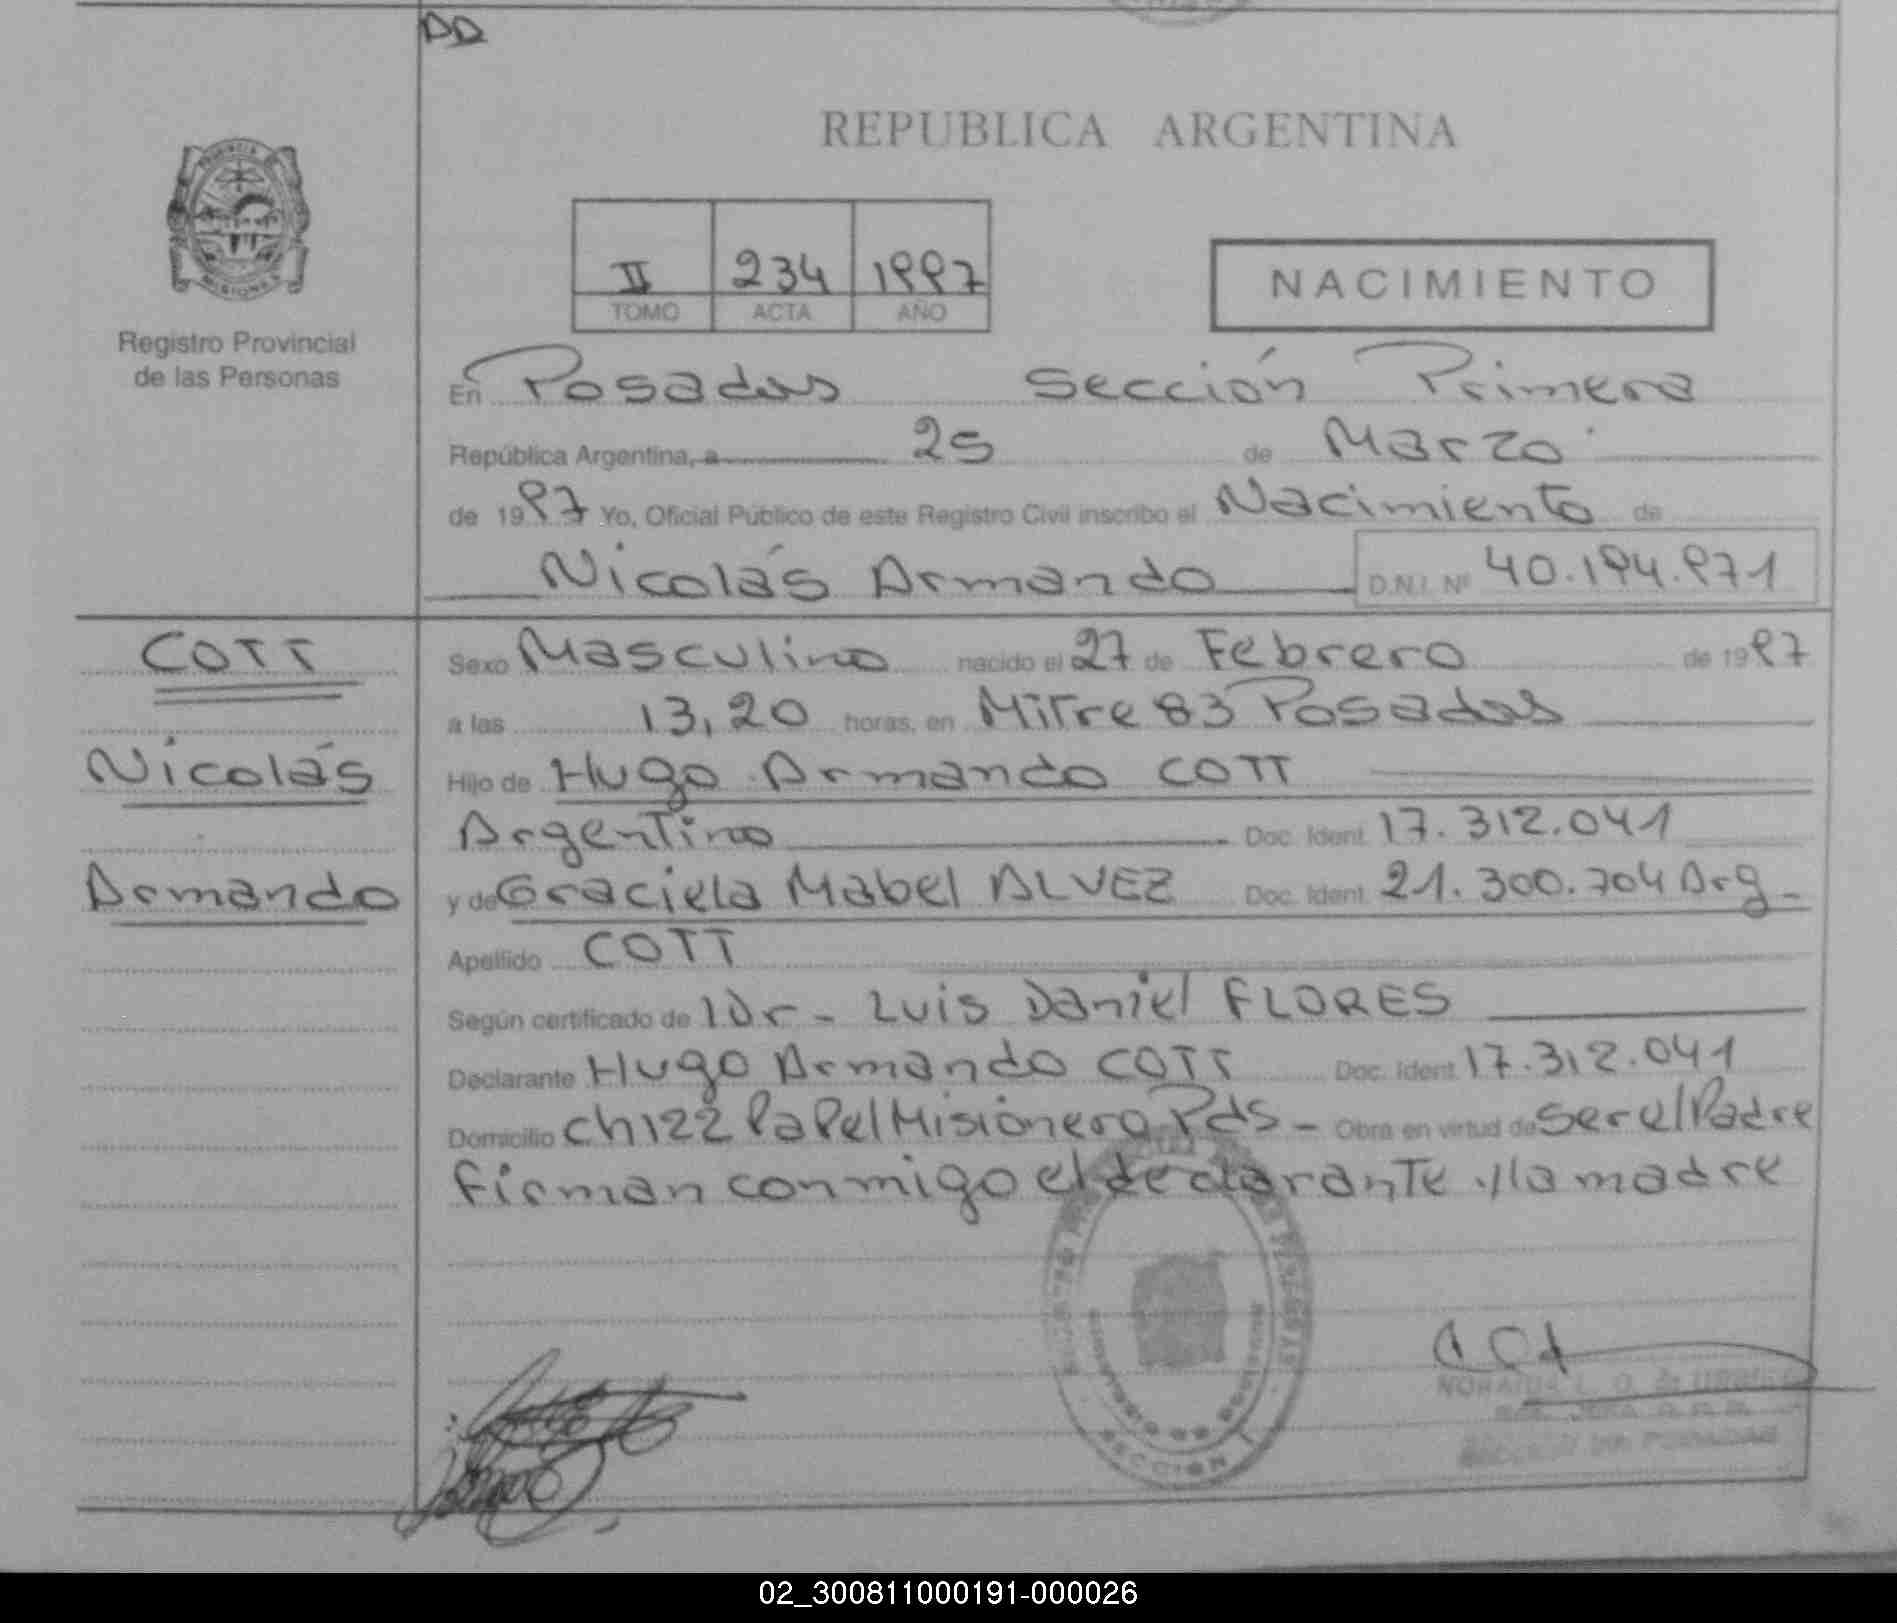 DD
REPUBLICA ARGENTINA
PROVINCIA
MISIONES
Registro Provincial
de las Personas
II 234 1997
TOMO ACTA AÑO
NACIMIENTO
En Posadas Sección Primera
República Argentina, a 25 de Marzo
de 1997 Yo, Oficial Público de este Registro Civil inscribo el Nacimiento de
Nicolás Armando D.N.I. Nº 40.194.971
COTT
Nicolás
Armando
Sexo Masculino nacido el 27 de Febrero de 1997
a las 13,20 horas, en Mitre 83 Posadas
Hijo de Hugo Armando COTT
Argentino Doc. Ident. 17.312.041
y de Graciela Mabel ALVEZ Doc. Ident. 21.300.704 Arg-
Apellido COTT
Según certificado de Dr- Luis Daniel FLORES
Declarante Hugo Armando COTT Doc. Ident. 17.312.041
Domicilio ch122 Papel Misionero Pds- Obra en virtud de ser el Padre
firman conmigo el declarante y la madre
SECCION I
02_300811000191-000026